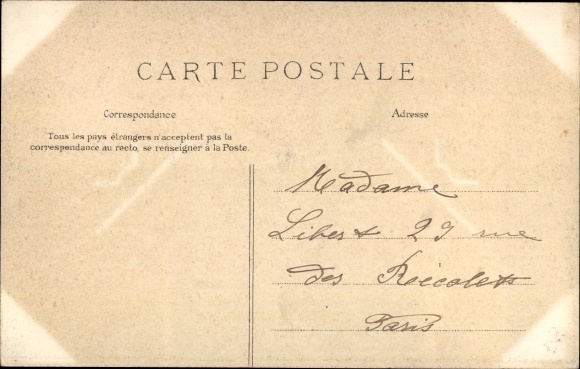 CARTE POSTALE
Correspondance
Adresse
Tous les pays étrangers n'acceptent pas la
correspondance au recto, se renseigner à la Poste.
Madame
Libert 29 rue
des Récolets
Paris